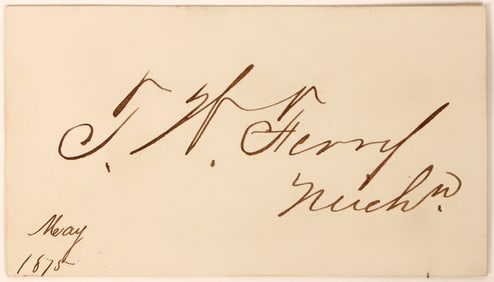 T. W. Ferry
Mich n.
May
1875